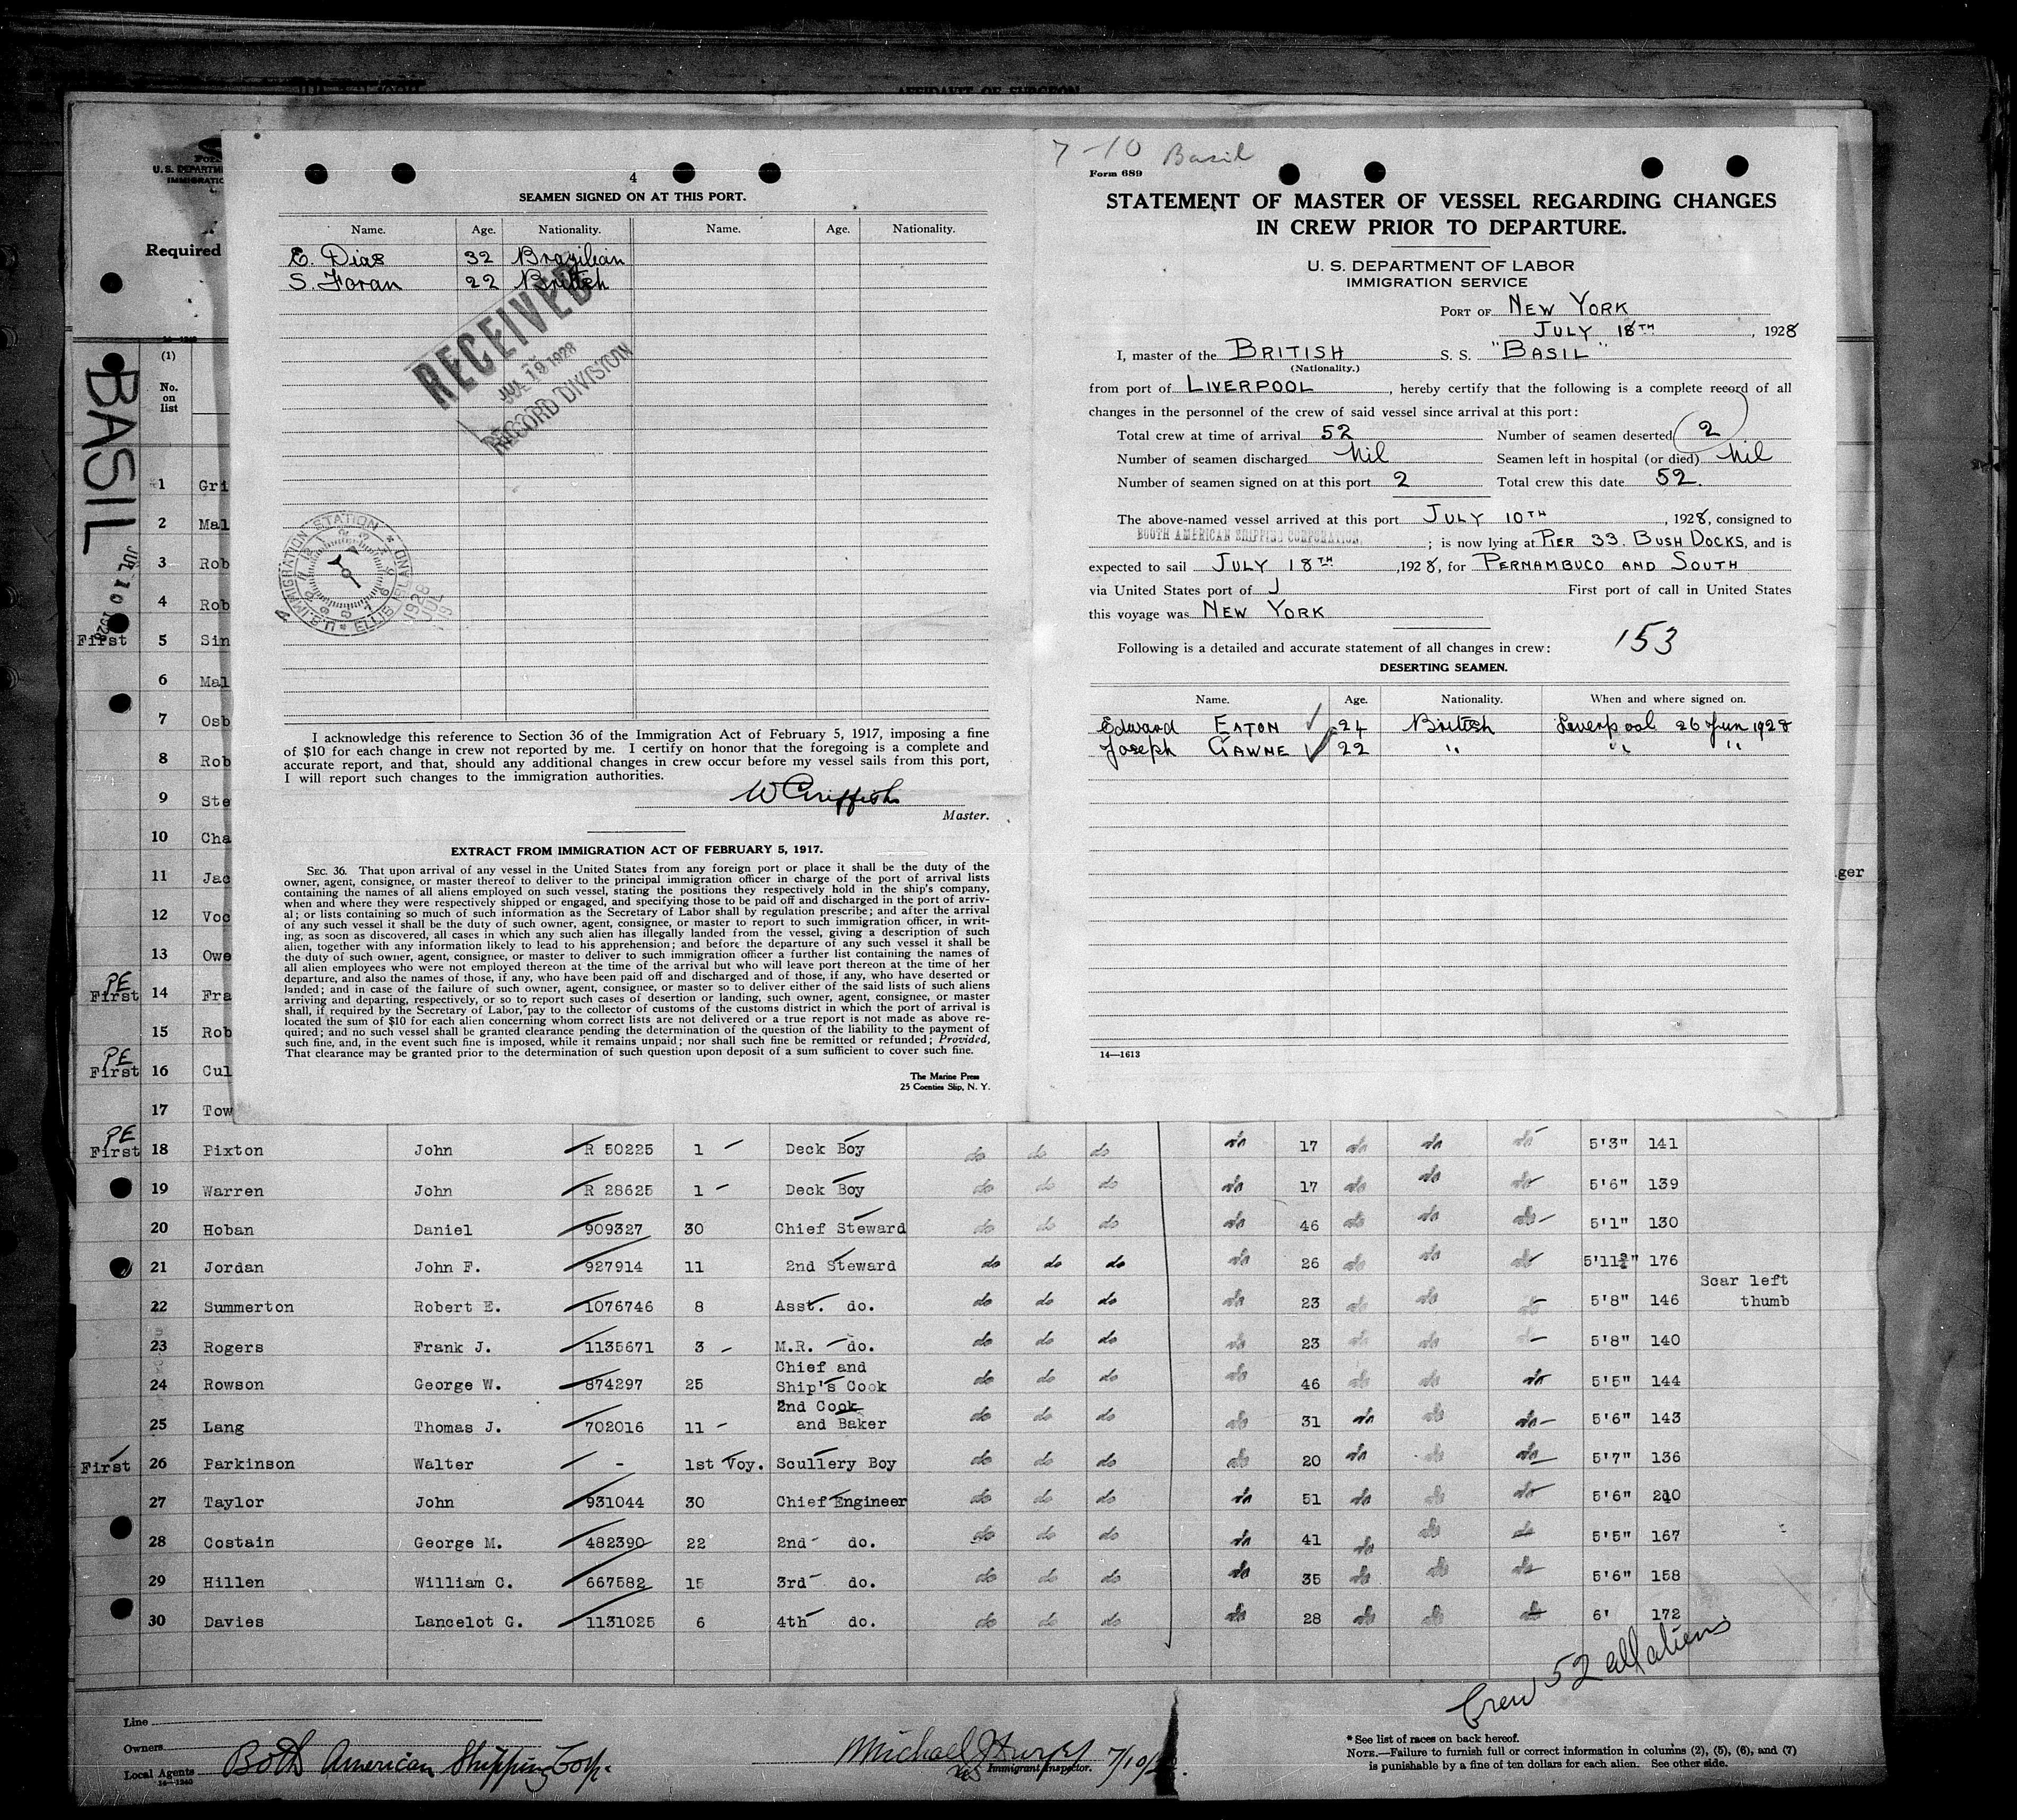 AFFIDAVIT OF SURGEON
U. S. DEPARTM
IMMIGRATIO
Required
(1)
No.
on
list
BASIL
JUL 10 1928
4
SEAMEN SIGNED ON AT THIS PORT.
Name. Age. Nationality. Name. Age. Nationality.
E. Dias 32 Brazilian
S. Foran 22 British
RECEIVED
JUL 19 1928
RECORD DIVISION
U.S. IMMIGRATION STATION ELLIS ISLAND
1928 JUL 19
I acknowledge this reference to Section 36 of the Immigration Act of February 5, 1917, imposing a fine
of $10 for each change in crew not reported by me. I certify on honor that the foregoing is a complete and
accurate report, and that, should any additional changes in crew occur before my vessel sails from this port,
I will report such changes to the immigration authorities.
W Griffith
Master.
EXTRACT FROM IMMIGRATION ACT OF FEBRUARY 5, 1917.
SEC. 36. That upon arrival of any vessel in the United States from any foreign port or place it shall be the duty of the
owner, agent, consignee, or master thereof to deliver to the principal immigration officer in charge of the port of arrival lists
containing the names of all aliens employed on such vessel, stating the positions they respectively hold in the ship's company,
when and where they were respectively shipped or engaged, and specifying those to be paid off and discharged in the port of arriv-
al; or lists containing so much of such information as the Secretary of Labor shall by regulation prescribe; and after the arrival
of any such vessel it shall be the duty of such owner, agent, consignee, or master to report to such immigration officer, in writ-
ing, as soon as discovered, all cases in which any such alien has illegally landed from the vessel, giving a description of such
alien, together with any information likely to lead to his apprehension; and before the departure of any such vessel it shall be
the duty of such owner, agent, consignee, or master to deliver to such immigration officer a further list containing the names of
all alien employees who were not employed thereon at the time of the arrival but who will leave port thereon at the time of her
departure, and also the names of those, if any, who have been paid off and discharged and of those, if any, who have deserted or
landed; and in case of the failure of such owner, agent, consignee, or master so to deliver either of the said lists of such aliens
arriving and departing, respectively, or so to report such cases of desertion or landing, such owner, agent, consignee, or master
shall, if required by the Secretary of Labor, pay to the collector of customs of the customs district in which the port of arrival is
located the sum of $10 for each alien concerning whom correct lists are not delivered or a true report is not made as above re-
quired; and no such vessel shall be granted clearance pending the determination of the question of the liability to the payment of
such fine, and, in the event such fine is imposed, while it remains unpaid; nor shall such fine be remitted or refunded; Provided,
That clearance may be granted prior to the determination of such question upon deposit of a sum sufficient to cover such fine.
The Marine Press
25 Coenties Slip, N. Y.
7-10 Basil
Form 689
STATEMENT OF MASTER OF VESSEL REGARDING CHANGES
IN CREW PRIOR TO DEPARTURE.
U. S. DEPARTMENT OF LABOR
IMMIGRATION SERVICE
PORT OF NEW YORK
JULY 18TH, 1928
I, master of the BRITISH S. S. "BASIL"
(Nationality.)
from port of LIVERPOOL, hereby certify that the following is a complete record of all
changes in the personnel of the crew of said vessel since arrival at this port:
Total crew at time of arrival 52 Number of seamen deserted 2
Number of seamen discharged Nil Seamen left in hospital (or died) Nil
Number of seamen signed on at this port 2 Total crew this date 52.
The above-named vessel arrived at this port JULY 10TH, 1928, consigned to
BOOTH AMERICAN SHIPPING CORPORATION. ; is now lying at PIER 33. BUSH DOCKS, and is
expected to sail JULY 18TH, 1928, for PERNAMBUCO AND SOUTH
via United States port of First port of call in United States
this voyage was NEW YORK
153
Following is a detailed and accurate statement of all changes in crew:
DESERTING SEAMEN.
Name. Age. Nationality. When and where signed on.
Edward EATON 24 British Liverpool 26 Jun 1928
Joseph GAWNE 22 " " "
14—1613
1 Gri
2 Mal
3 Rob
4 Rob
First 5 Sin
6 Mal
7 Osb
8 Rob
9 Ste
10 Cha
11 Jac ger
12 Voc
13 Owe
PE
First 14 Fra
15 Rob
PE
First 16 Cul
17 Tow
PE
First 18 Pixton John R 50225 1 Deck Boy do do do do 17 do do do 5'3" 141
19 Warren John R 28625 1 Deck Boy do do do do 17 do do do 5'6" 139
20 Hoban Daniel 909327 30 Chief Steward do do do do 46 do do do 5'1" 130
21 Jordan John F. 927914 11 2nd Steward do do do do 26 do do do 5'11¾" 176
22 Summerton Robert E. 1076746 8 Asst. do. do do do do 23 do do do 5'8" 146 Scar left thumb
23 Rogers Frank J. 1135671 3 M.R. do. do do do do 23 do do do 5'8" 140
24 Rowson George W. 874297 25 Chief and Ship's Cook do do do do 46 do do do 5'5" 144
25 Lang Thomas J. 702016 11 2nd Cook and Baker do do do do 31 do do do 5'6" 143
First 26 Parkinson Walter - 1st Voy. Scullery Boy do do do do 20 do do do 5'7" 136
27 Taylor John 931044 30 Chief Engineer do do do do 51 do do do 5'6" 210
28 Costain George M. 482390 22 2nd do. do do do do 41 do do do 5'5" 167
29 Hillen William C. 667582 15 3rd do. do do do do 35 do do do 5'6" 158
30 Davies Lancelot G. 1131025 6 4th do. do do do do 28 do do do 6' 172
Crew 52 all aliens
Line
Owners
Local Agents Booth American Shipping Corp.
14—1240
Michael 7/10/
Immigrant Inspector.
* See list of races on back hereof.
NOTE.—Failure to furnish full or correct information in columns (2), (5), (6), and (7)
is punishable by a fine of ten dollars for each alien. See other side.